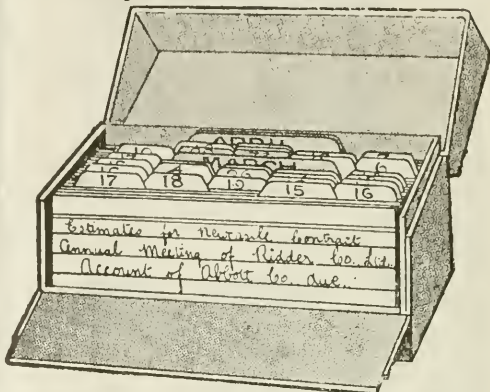 APRIL
MARCH
17 18 19 15 16
Estimates for Newcastle Contract
Annual Meeting of Ridder Co. Ltd.
Account of Abbott Co. due.